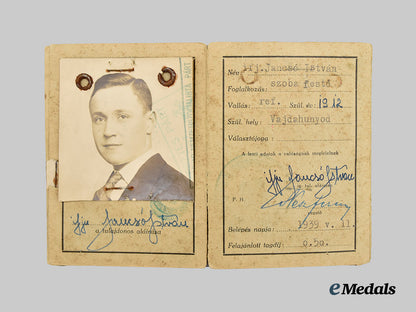 PÁRT
ifj. Jancsó István
a tulajdonos aláírása
Név: ifj. Jancsó István
Foglalkozás: szoba festő
Vallás: ref. Szül. év: 1912
Szül. hely: Vajdahunyod
Választójoga:
A fenti adatok a valóságnak megfelelnek
ifj. Jancsó István
P. H.
Belépés napja: 1939 v. 11.
Felajánlott tagdíj: 0.50.
eMedals